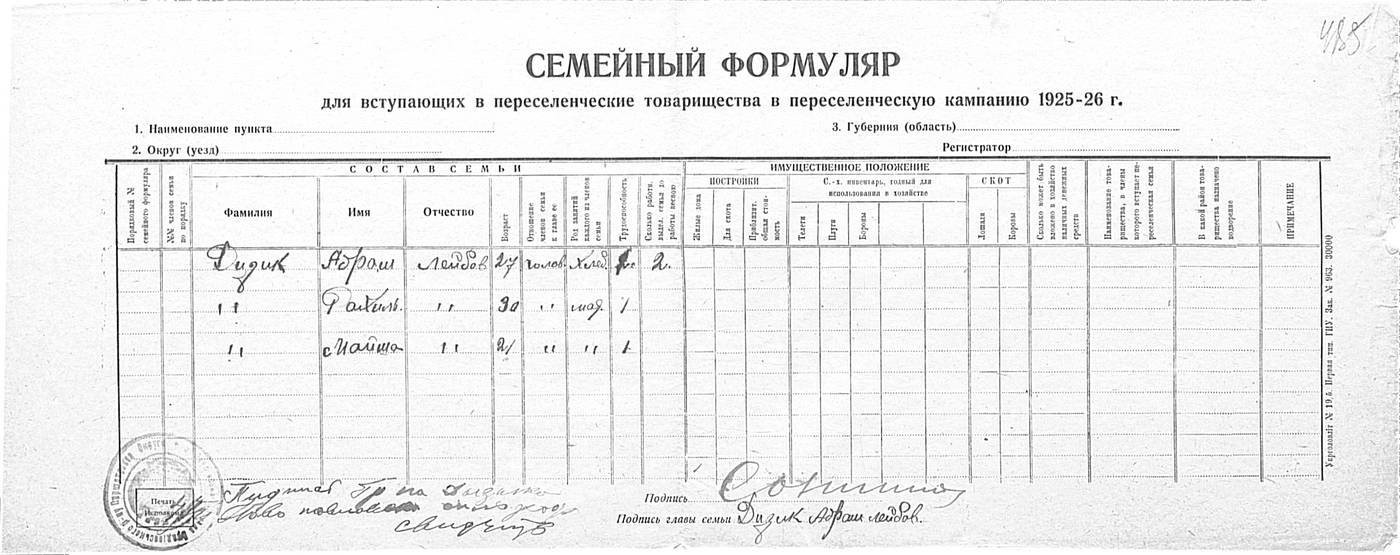 485
СЕМЕЙНЫЙ ФОРМУЛЯР
для вступающих в переселенческие товарищества в переселенческую кампанию 1925-26 г.
1. Наименование пункта
3. Губерния (область)
2. Округ (уезд)
Регистратор
СОСТАВ СЕМЬИ
ИМУЩЕСТВЕННОЕ ПОЛОЖЕНИЕ
Порядковый № семейного формуляра
№№ членов семьи по порядку
Фамилия
Имя
Отчество
Возраст
Отношение членов семьи к главе ее
Род занятий каждого из членов семьи
Трудоспособность
Сколько работн. выдел. семья до работы весною
ПОСТРОЙКИ
Жилые дома
Для скота
Приблизит. общая стоимость
С.-х. инвентарь, годный для использования в хозяйстве
Телеги
Плуги
Бороны
СКОТ
Лошади
Коровы
Сколько может быть вложено в хозяйство наличных денежных средств
Наименование товарищества, в члены которого вступает переселенческая семья
В какой район товарищества назначено водворение
ПРИМЕЧАНИЕ
Дидик Абрам Лейбов 27 голов. Хлеб. 2.
" Рахиль. " 30 " 1
" Майша " 21 " " 1
Печать
Подпись
Подпись главы семьи Дидик Абрам Лейбов.
Укрголовліт № 19,5. Первая тип. ГИУ. Зак. № 963. 30000